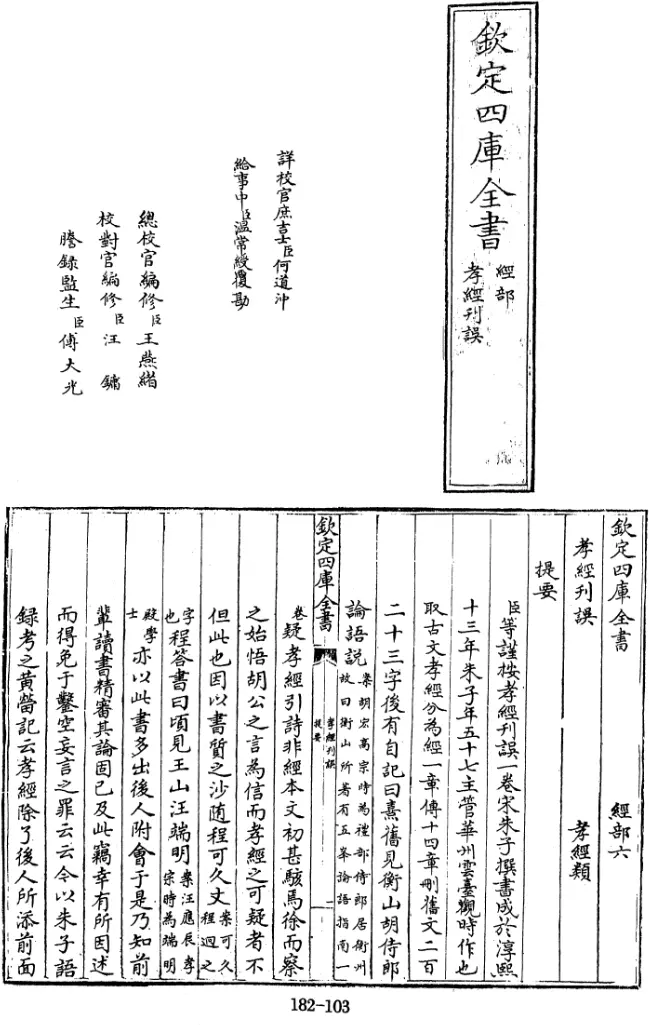 欽定四庫全書
經部
孝經刊誤
詳校官庶吉士臣何道沖
給事中臣溫常綬覆勘
總校官編修臣王燕緒
校對官編修臣汪鏞
謄錄監生臣傅大光
欽定四庫全書 經部六
孝經刊誤 孝經類
提要
臣等謹按孝經刊誤一卷宋朱子撰書成於淳熙
十三年朱子年五十七主管華州雲臺觀時作也
取古文孝經分為經一章傳十四章刪舊文二百
二十三字後有自記曰熹舊見衡山胡侍郎
論語説案胡宏高宗時為禮部侍郎居衡州
故曰衡山所著有五峯論語指南一
欽定四庫全書
孝經刊誤
提要
二
卷疑孝經引詩非經本文初甚駭焉徐而察
之始悟胡公之言為信而孝經之可疑者不
但此也因以書質之沙随程可久丈案可久
程迥之
字
也程答書曰頃見玉山汪端明案汪應辰孝
宗時為端明
殿學
士亦以此書多出後人附會于是乃知前
輩讀書精審其論固已及此竊幸有所因述
而得免于鑿空妄言之罪云云今以朱子語
録考之黄㽦記云孝經除了後人所添前面
182-103